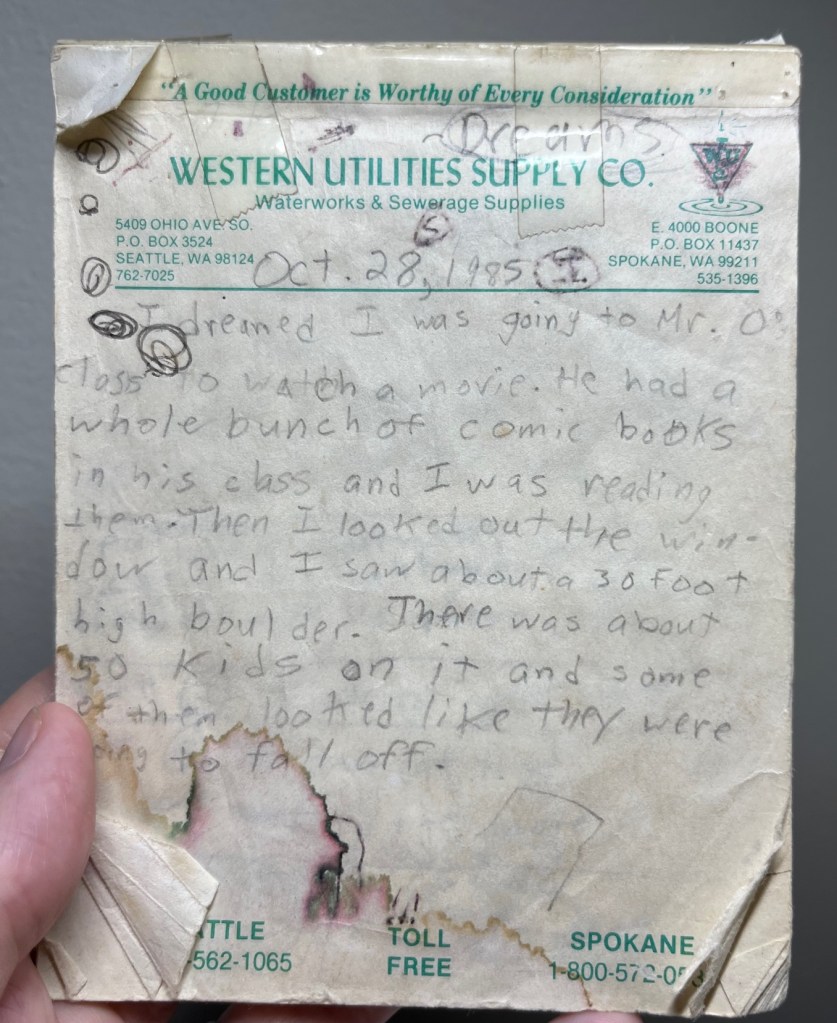 "A Good Customer is Worthy of Every Consideration"
Dreams
WESTERN UTILITIES SUPPLY CO.
Waterworks & Sewerage Supplies
5409 OHIO AVE. SO.
P.O. BOX 3524
SEATTLE, WA 98124
762-7025
E. 4000 BOONE
P.O. BOX 11437
SPOKANE, WA 99211
535-1396
S
Oct. 28, 1985 I
I dreamed I was going to Mr. O's
class to watch a movie. He had a
whole bunch of comic books
in his class and I was reading
them. Then I looked out the win-
dow and I saw about a 30 foot
high boulder. There was about
50 kids on it and some
of them looked like they were
going to fall off.
ATTLE
-562-1065
TOLL
FREE
SPOKANE